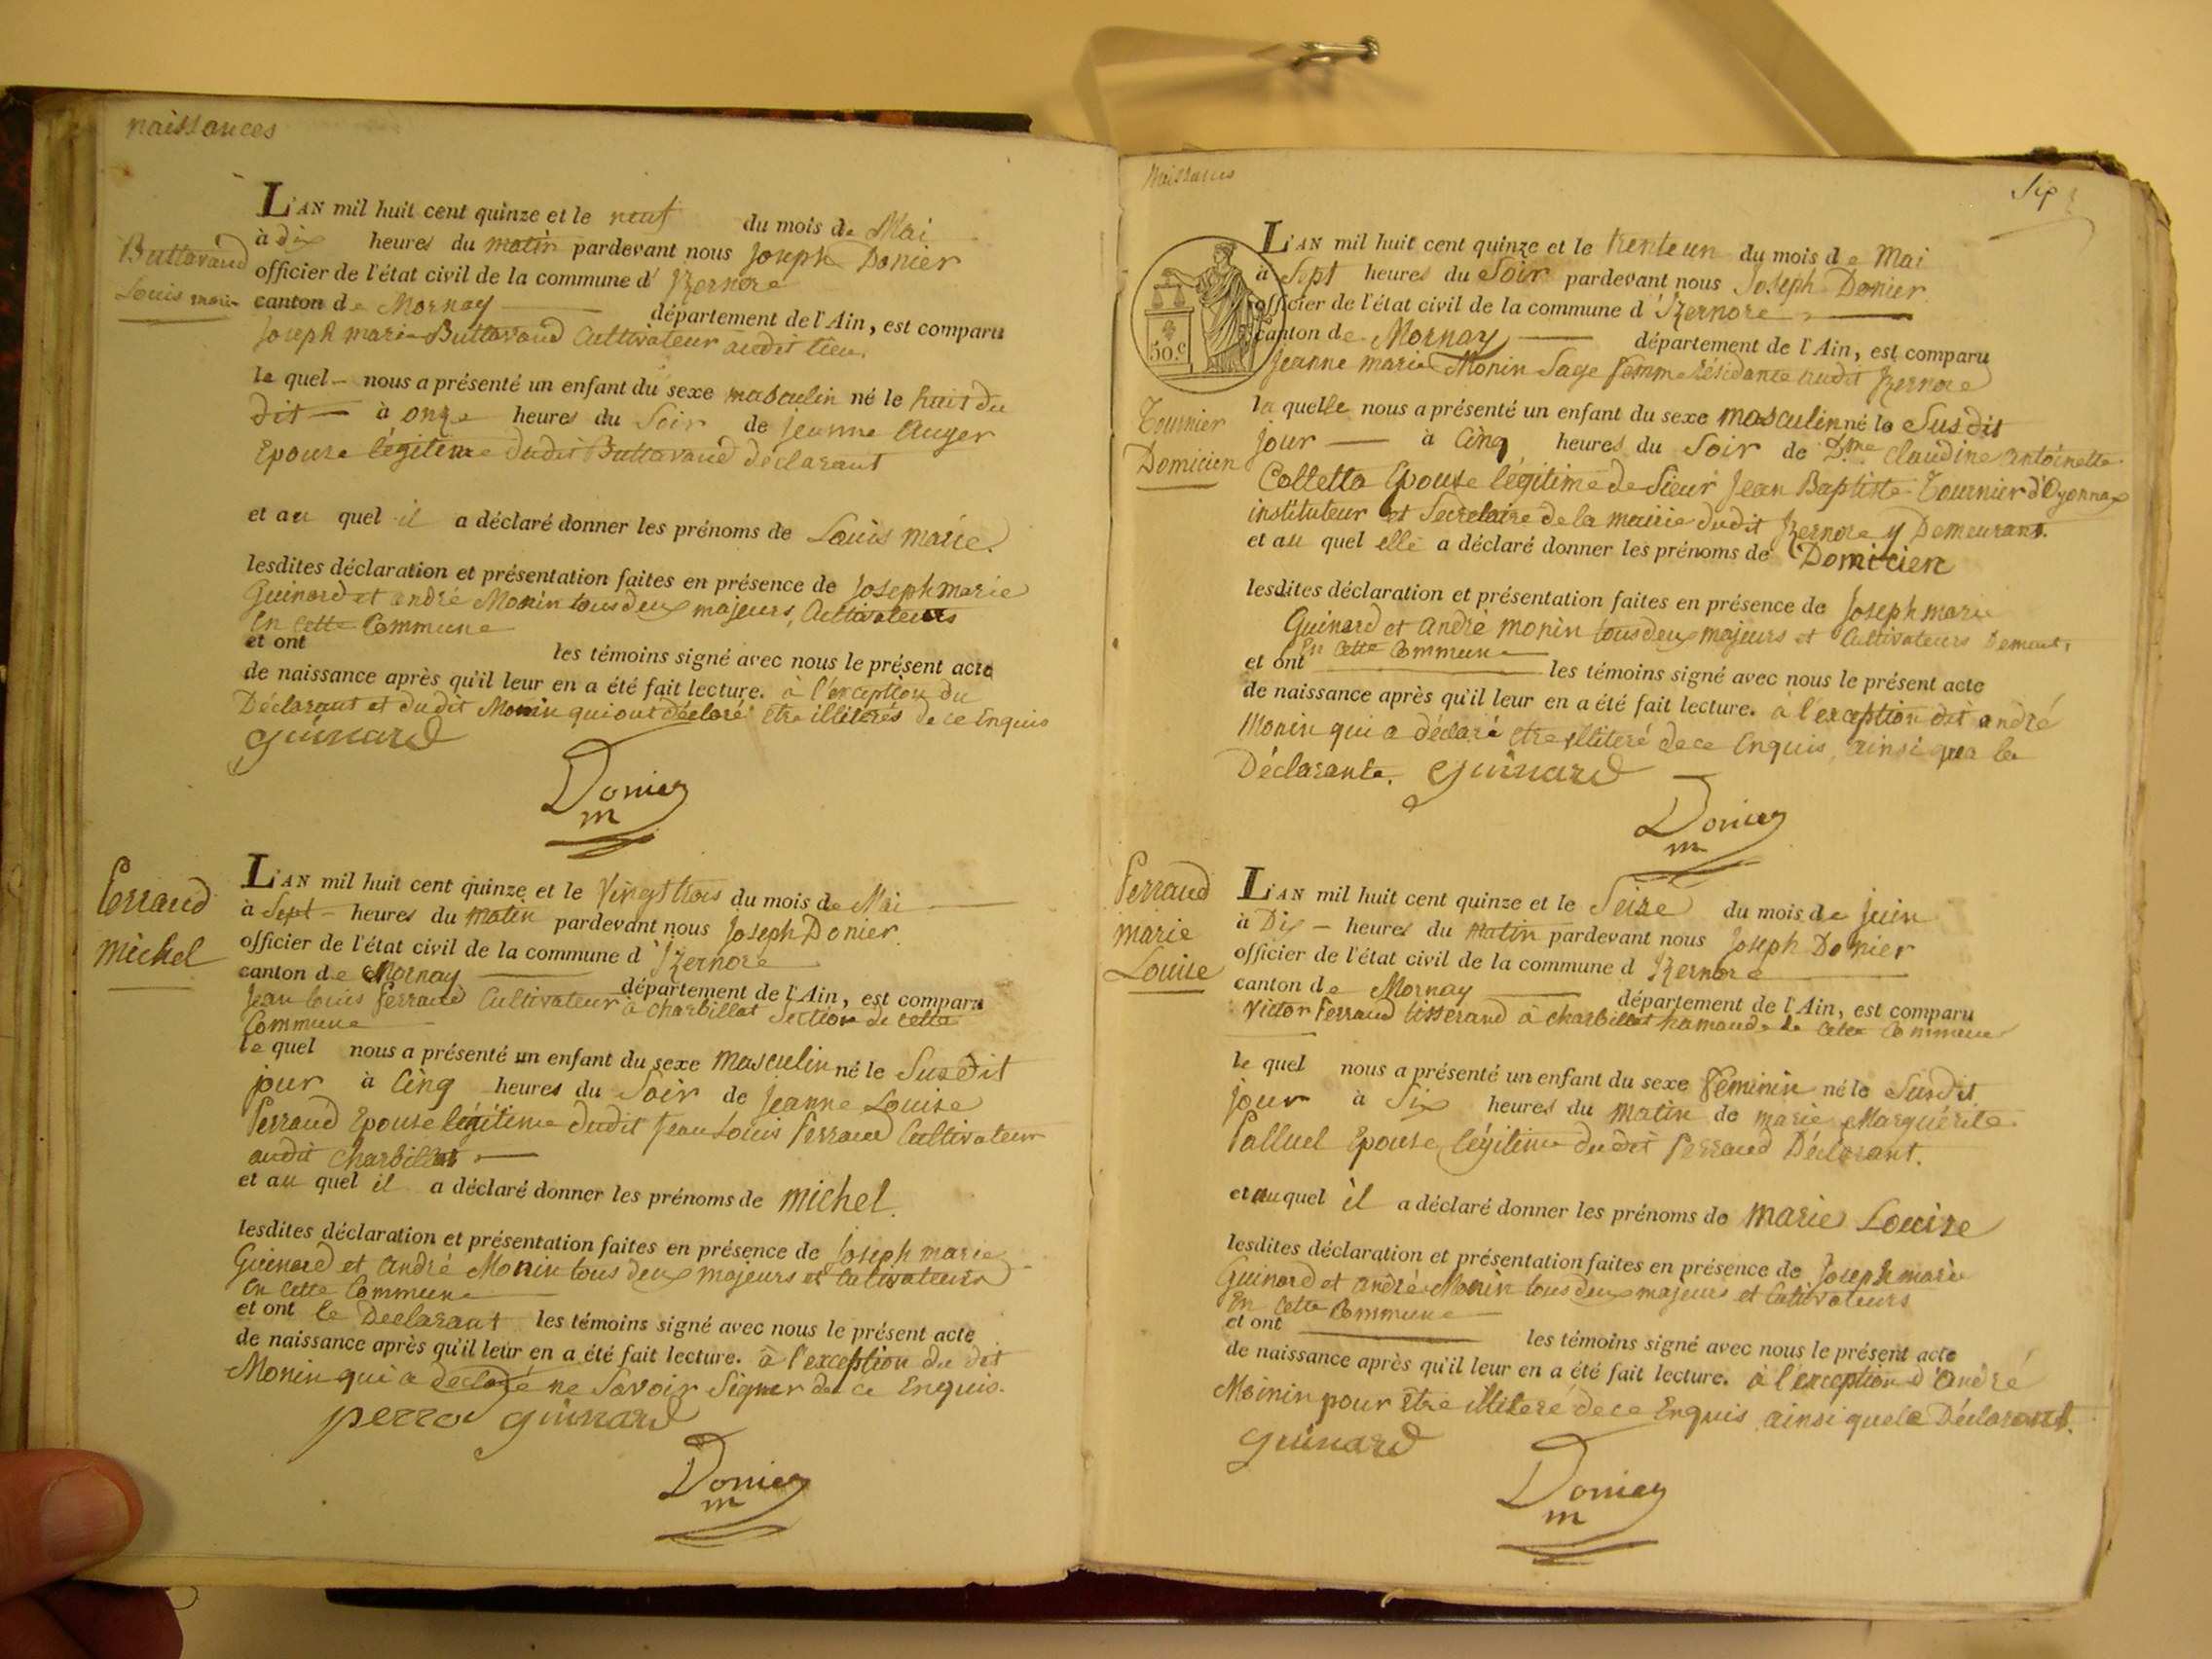 naissances
Buttavand
Louis marie
L'AN mil huit cent quinze et le neuf du mois de Mai
à dix heures du matin pardevant nous Joseph Donier
officier de l'état civil de la commune d'Izernore
canton de Mornay département de l'Ain, est comparu
Joseph marie Buttavand Cultivateur audit lieu.
le quel nous a présenté un enfant du sexe masculin né le huit du
dit à onze heures du Soir de jeanne Auger
Epouse légitime dudit Buttavand déclarant
et au quel il a déclaré donner les prénoms de Louis marie.
lesdites déclaration et présentation faites en présence de Joseph marie
Guinard et andré Monin tous deux majeurs, Cultivateurs
En cette Commune
et ont les témoins signé avec nous le présent acte
de naissance après qu'il leur en a été fait lecture. à l'exception du
Déclarant et dudit Monin qui ont déclaré être illiterés de ce Enquis
guinard
Donier
m
Perraud
michel
L'AN mil huit cent quinze et le Vingt trois du mois de Mai
à Sept heures du matin pardevant nous Joseph Donier
officier de l'état civil de la commune d'Izernore
canton de Mornay département de l'Ain, est comparu
Jean Louis Perraud Cultivateur à Charbillat Section de cette
Commune
le quel nous a présenté un enfant du sexe masculin né le Susdit
jour à Cinq heures du Soir de Jeanne Louise
Perraud Epouse légitime dudit Jean Louis Perraud Cultivateur
audit Charbillat
et au quel il a déclaré donner les prénoms de michel.
lesdites déclaration et présentation faites en présence de Joseph marie
Guinard et andré Monin tous deux majeurs et Cultivateurs
En cette Commune
et ont le Declarant les témoins signé avec nous le présent acte
de naissance après qu'il leur en a été fait lecture. à l'exception du dit
Monin qui a declaré ne Savoir Signer de ce Enquis.
guinard
Donier
m
Naissances
Six
50.c
Tournier
Domicien
L'AN mil huit cent quinze et le trente un du mois de Mai
à Sept heures du Soir pardevant nous Joseph Donier
officier de l'état civil de la commune d'Izernore
canton de Mornay département de l'Ain, est comparu
Jeanne marie Monin Sage femme résidante audit Izernore
la quelle nous a présenté un enfant du sexe masculin né le Susdit
jour à Cinq heures du Soir de Dme Claudine antoinette
Colletta Epouse légitime de Sieur Jean Baptiste Tournier d'Oyonnax
instituteur et Secretaire de la mairie dudit Izernore y Demeurant.
et au quel elle a déclaré donner les prénoms de Domicien
lesdites déclaration et présentation faites en présence de Joseph marie
Guinard et andré monin tous deux majeurs et Cultivateurs Demeurt
En cette Commune
et ont les témoins signé avec nous le présent acte
de naissance après qu'il leur en a été fait lecture. à l'exception dit andré
Monin qui a déclaré être illiteré de ce Enquis, ainsi que la
Déclarante. guinard
Donier
m
Perraud
marie
Louise
L'AN mil huit cent quinze et le Seize du mois de juin
à Dix heures du matin pardevant nous Joseph Donier
officier de l'état civil de la commune d Izernore
canton de Mornay département de l'Ain, est comparu
Victor Perraud tisserand à charbillat hamaud de cette Commune
le quel nous a présenté un enfant du sexe féminin né le Susdit
jour à Six heures du matin de marie Marguérite
Palluel Epouse légitime dudit Perraud Déclarant.
et au quel il a déclaré donner les prénoms de marie Louise
lesdites déclaration et présentation faites en présence de Joseph marie
Guinard et andré Monin tous deux majeurs et Cultivateurs
En cette Commune
et ont les témoins signé avec nous le présent acte
de naissance après qu'il leur en a été fait lecture. à l'exception d'André
Moinin pour être illiteré de ce Enquis ainsi que le Déclarant.
guinard
Donier
m